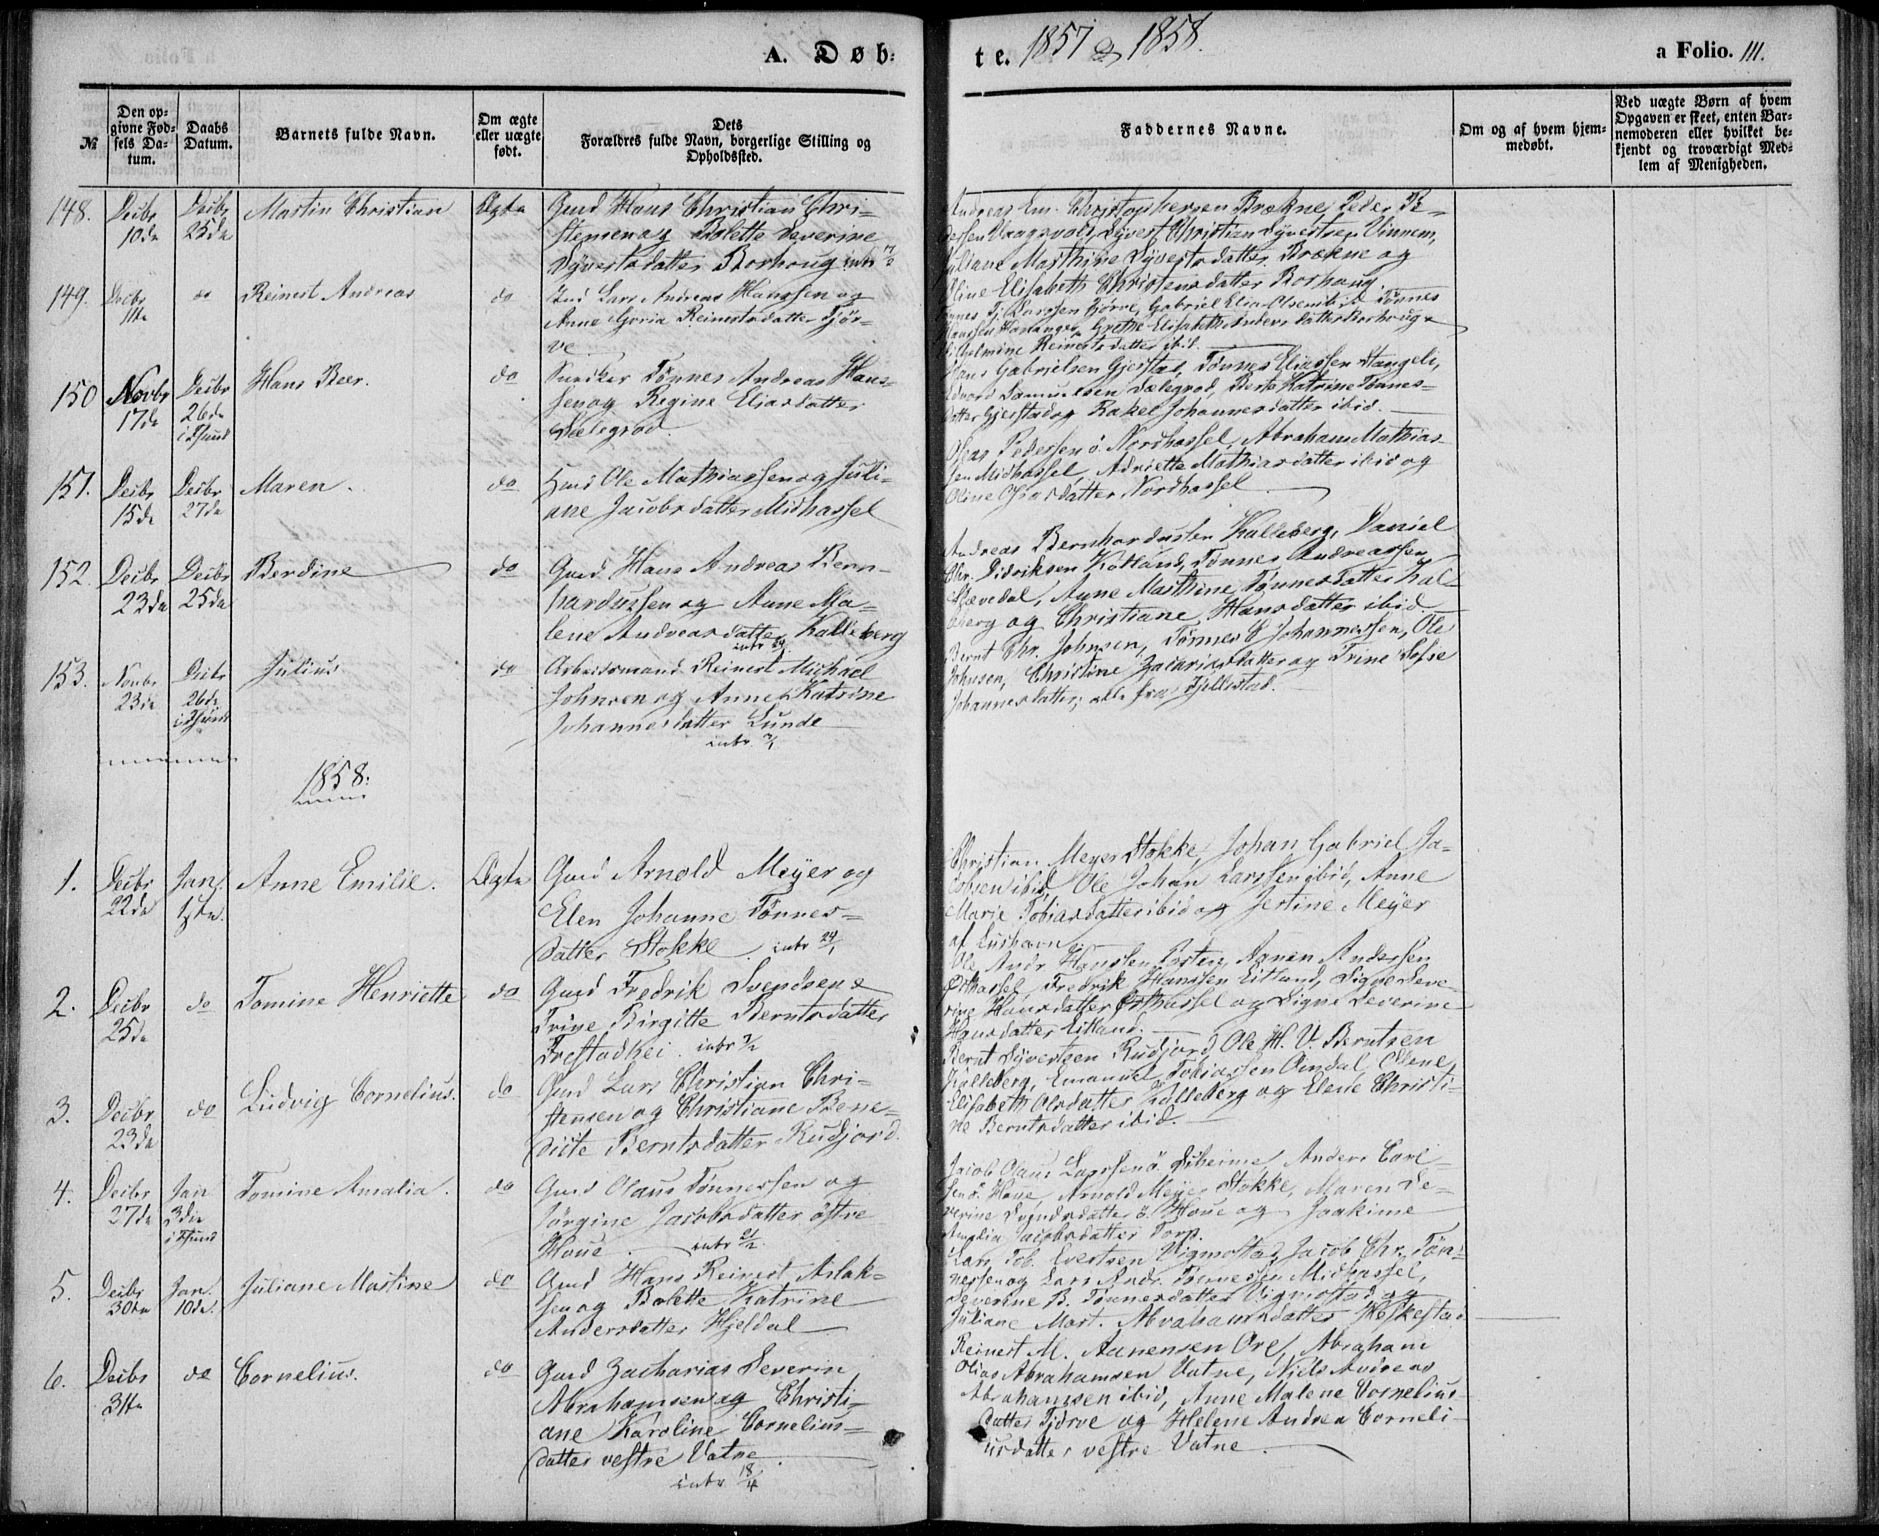 A. Døb-
te. 1857 & 1858.
a Folio. 111.
№
Den opgivne Fødsels Datum.
Daabs Datum.
Barnets fulde Navn.
Om ægte eller uægte født.
Dets Forældres fulde Navn, borgerlige Stilling og Opholdssted.
Faddernes Navne.
Om og af hvem hjemmedøbt.
Ved uægte Børn af hvem Opgaven er skeet, enten Barnemoderen eller hvilket bekjendt og troværdigt Medlem af Menigheden.
148. Decbr 10de
Decbr 25de
Martin Christian
Ægte
Gmd Hans Christian Chri-
stensen og Bolette Severine
Syvertsdatter Borhoug
Andreas Em. Christophersen Brækne, Peder Pe-
dersen Vaagsvold, Syvert Christian Syvertsen Vinnem,
Juliane Marthine Syvertsdatter Brækne og
Eline Elisabeth Christensdatter Borhaug.
149. Decbr 11te
do
Reinert Andreas
do
Gmd Lars Andreas Hanssen og
Anne Gloria Reinertsdatter Tjør-
ve
Tønnes Tj. Larssen Tjørve, Gabriel Elia Olsen ibid, Tønnes
Hanssen Hananger, Grethe Elisabeth Andersdatter Borhoug &
Vilhelmine Reinertsdatter ibid.
150 Novbr 17de
Decbr 26de
i Fsund
Hans Beer.
do
Snedker Tønnes Andreas Hans-
sen og Regine Eliasdatter
Sælegrod.
Hans Gabrielsen Gjerstad, Tønnes Eliassen Stangeli,
Edvard Samuelsen Sælegrod, Berte Katrine Tønnes-
datter Gjerstad og Rakel Johannesdatter ibid.
151. Decbr 15de
Decbr 27de
Maren.
do
Gmd Ole Mathiassen og Juli-
ane Jacobsdatter Midhassel
Osias Pedersen ö. Nordhassel, Abraham Mathias-
sen Midhassel, Adriette Mathiasdatter ibid og
Oline Osiasdatter Nordhassel
152. Decbr 23de
Decbr 25de
Berdine
do
Gmd. Hans Andreas Bern-
hardussen og Anne Ma-
lene Andreasdatter Kalleberg
Andreas Bernhardussen Kalleberg, Daniel
Chr. Didriksen Kotland, Tønnes Andreassen
Skjævedal, Anne Marthine Tønnesdatter Kal-
leberg og Christiane Hansdatter ibid.
153. Novbr 23de
Decbr 26de
i Fsund
Julius
do
Arbeidsmand Reinert Michael
Johnsen og Anne Katrine
Johannesdatter Lunde
intr 3/1
Bernt Chr. Johnsen, Tønnes E Johannessen, Ole
Johnsen, Christine Zachariasdatter og Trine Sofie
Johannesdatter, alle fra Fjellestad.
1858.
1. Decbr 22de
Jan. 1ste.
Anne Emilie.
Ægte
Gmd Arnold Meyer og
Elen Johanne Tønnes-
datter Stokke. intr 24/1
Christian Meyer Stokke, Johan Gabriel Ja-
cobsen ibid, Ole Johan Larssen ibid, Anne
Marie Tobiasdatter ibid og Jestine Meyer
af Lushavn
2. Decbr 25de
do
Tomine Henriette
do
Gmd Fredrik Svendsen &
Trine Birgitte Berntsdatter
Frestadhei. intr 7/2
Ole Andr Hanssen Østen, Aanen Andersen
Østhassel, Fredrik Hanssen Eitland, Signe Seve-
rine Hansdatter Østhassel og Signe Severine
Hansdatter Eitland.
3. Decbr 23de
do
Ludvig Cornelius.
do
Gmd Lars Christian Chri-
stensen og Christiane Bene-
dicte Berntsdatter Rudjord.
Bernt Syvertsen Rudjord, Ole H. V. Berntsen
Kalleberg, Emanuel Tobiassen Omdal, Ellene
Elisabeth Olsdatter Kalleberg og Elene Christi-
ne Berntsdatter ibid.
4. Decbr 27de
Jan 3die
i Fsund
Tomine Amalia.
do
Gmd Olaus Tønnessen og
Jörgine Jacobsdatter östre
Houe. intr 21/2.
Jacob Olaus Larssen ö. Duheime Anders Carl-
sen ö. Houe, Arnold Meyer Stokke, Maren Se-
verine Svendsdatter ö. Houe og Joakime
Amalia Jacobsdatter Torp.
5. Decbr 30te
Jan. 10de.
Juliane Martine
do
Gmd Hans Reinert Aslak-
sen og Bolette Katrine
Andersdatter Hjeldal
Lars Tob. Evertsen Vigmostad, Jacob Chr. Tøn-
nessen og Lars Andr. Tønnessen Midhassel,
Severine B. Tønnesdatter Vigmostad og
Juliane Mart. Abrahamsdatter Heskestad.
6. Decbr 31te
do
Cornelius.
do
Gmd Zacharias Severin
Abrahamsen og Christi-
ane Karoline Cornelius-
datter vestre Vatne.
intr 18/4
Reinert M. Aanensen Ore, Abraham
Olias Abrahamsen Vatne, Niels Andreas
Abrahamsen ibid, Anne Malene Cornelius-
datter Tjørve og Helene Andrea Corneli-
usdatter vestre Vatne.